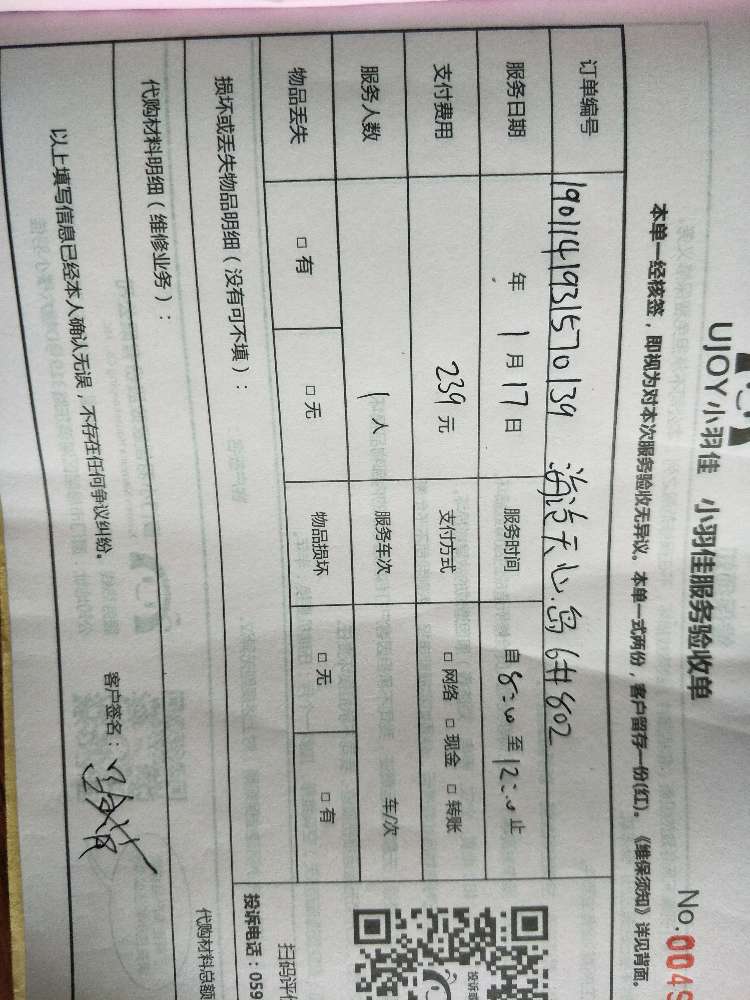 UJOY小羽佳 小羽佳服务验收单
No.0049
本单一经核签，即视为对本次服务验收无异议。本单一式两份，客户留存一份(红)。《维保须知》详见背面。
订单编号 1901141931570139 海沧天心岛6#802
服务日期 年 1月17日 服务时间 自8:00至12:00止
支付费用 239元 支付方式 □网络 □现金 □转账
服务人数 1人 服务车次 车/次
物品丢失 □有 □无 物品损坏 □无 □有
损坏或丢失物品明细（没有可不填）：
代购材料明细（维修业务）：
以上填写信息已经本人确认无误，不存在任何争议纠纷。
客户签名：
扫码评价
投诉电话：059
代购材料总额